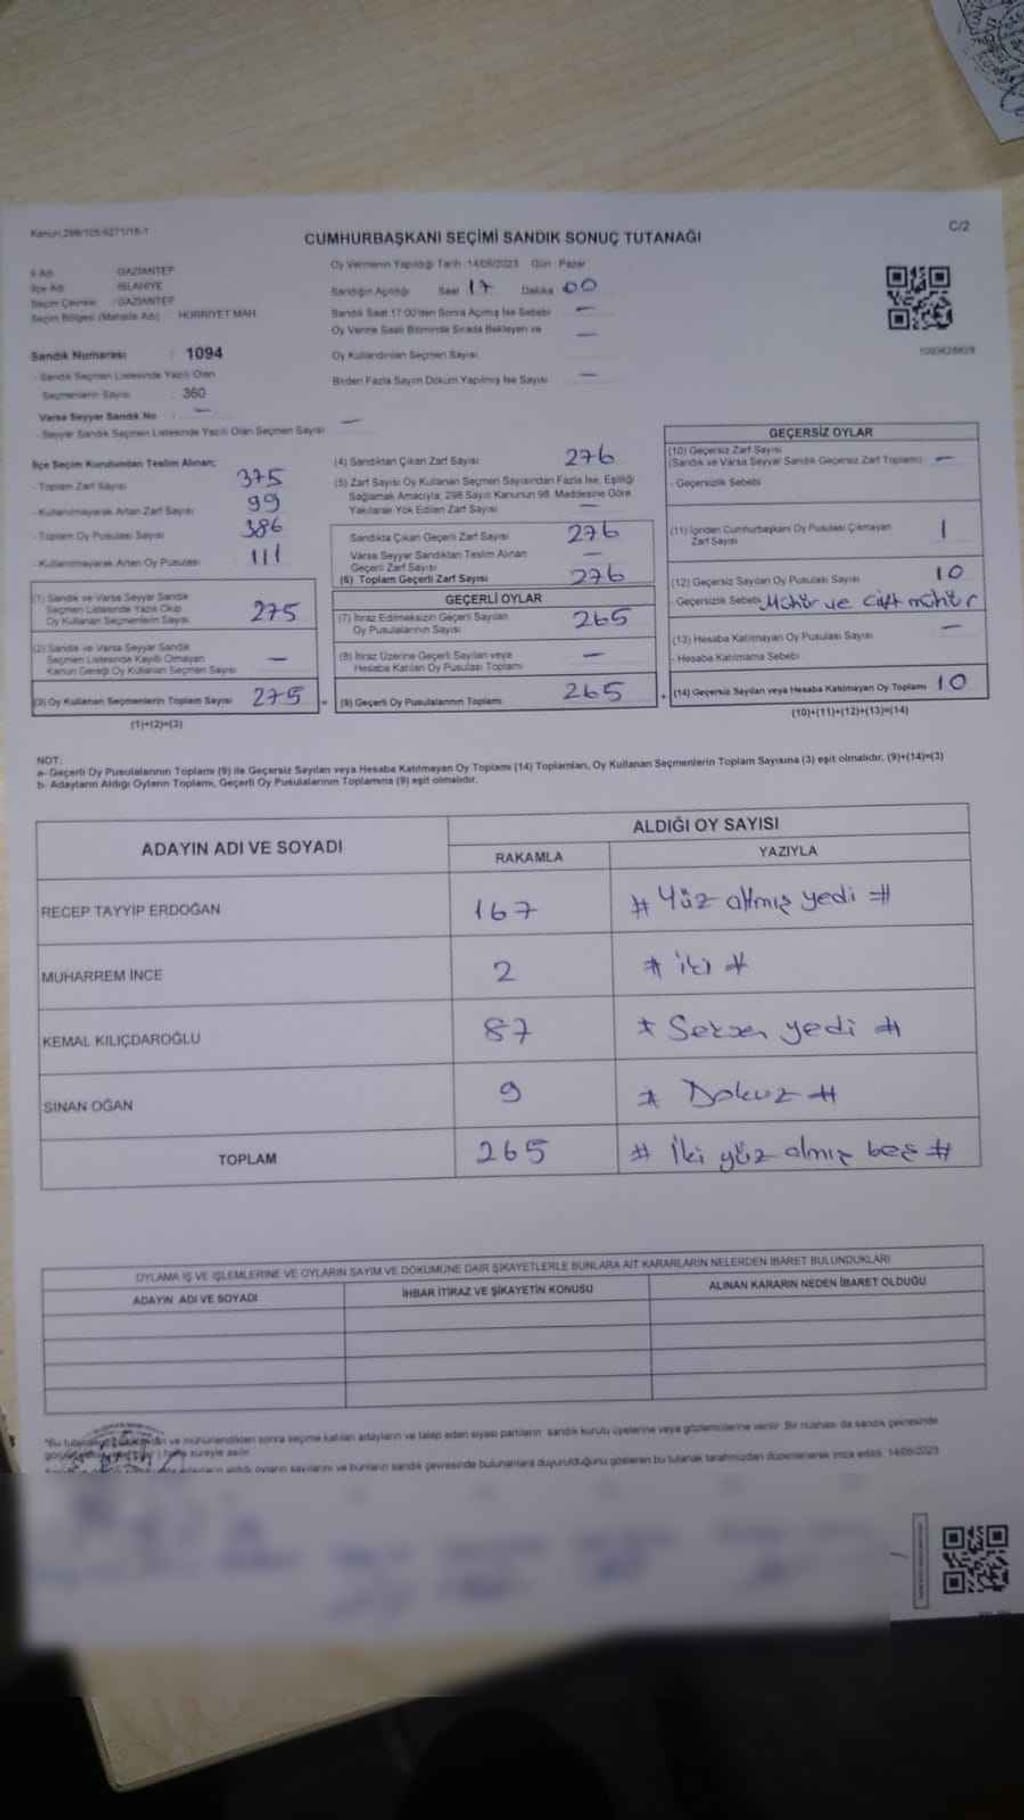 Kanun: 298/105-6271/18-1
C/2
CUMHURBAŞKANI SEÇİMİ SANDIK SONUÇ TUTANAĞI
İl Adı : GAZİANTEP
İlçe Adı : İSLAHİYE
Seçim Çevresi : GAZİANTEP
Seçim Bölgesi (Mahalle Adı) : HÜRRİYET MAH.
Oy Vermenin Yapıldığı Tarih :14/05/2023 Gün : Pazar
Sandığın Açıldığı Saat 17 Dakika 00
Sandık Saat 17:00'den Sonra Açılmış İse Sebebi —
Oy Verme Saati Bitiminde Sırada Bekleyen ve —
Oy Kullandırılan Seçmen Sayısı
Birden Fazla Sayım Döküm Yapılmış İse Sayısı —
Sandık Numarası : 1094
- Sandık Seçmen Listesinde Yazılı Olan
Seçmenlerin Sayısı : 360
Varsa Seyyar Sandık No : —
- Seyyar Sandık Seçmen Listesinde Yazılı Olan Seçmen Sayısı : —
İlçe Seçim Kurulundan Teslim Alınan;
- Toplam Zarf Sayısı 375
- Kullanılmayarak Artan Zarf Sayısı 99
- Toplam Oy Pusulası Sayısı 386
- Kullanılmayarak Artan Oy Pusulası 111
(1) Sandık ve Varsa Seyyar Sandık
Seçmen Listesinde Yazılı Olup
Oy Kullanan Seçmenlerin Sayısı 275
(2) Sandık ve Varsa Seyyar Sandık
Seçmen Listesinde Kayıtlı Olmayan
Kanun Gereği Oy Kullanan Seçmen Sayısı —
(3) Oy Kullanan Seçmenlerin Toplam Sayısı 275
(1)+(2)=(3)
(4) Sandıktan Çıkan Zarf Sayısı 276
(5) Zarf Sayısı Oy Kullanan Seçmen Sayısından Fazla İse, Eşitliği
Sağlamak Amacıyla, 298 Sayılı Kanunun 98. Maddesine Göre
Yakılarak Yok Edilen Zarf Sayısı —
Sandıkta Çıkan Geçerli Zarf Sayısı 276
Varsa Seyyar Sandıktan Teslim Alınan
Geçerli Zarf Sayısı —
(6) Toplam Geçerli Zarf Sayısı 276
GEÇERLİ OYLAR
(7) İtiraz Edilmeksizin Geçerli Sayılan
Oy Pusulalarının Sayısı 265
(8) İtiraz Üzerine Geçerli Sayılan veya
Hesaba Katılan Oy Pusulası Toplamı —
=
(9) Geçerli Oy Pusulalarının Toplamı 265
+
GEÇERSİZ OYLAR
(10) Geçersiz Zarf Sayısı
(Sandık ve Varsa Seyyar Sandık Geçersiz Zarf Toplamı) —
- Geçersizlik Sebebi
(11) İçinden Cumhurbaşkanı Oy Pusulası Çıkmayan
Zarf Sayısı 1
(12) Geçersiz Sayılan Oy Pusulası Sayısı 10
- Geçersizlik Sebebi Mühür ve Çift mühür
(13) Hesaba Katılmayan Oy Pusulası Sayısı —
- Hesaba Katılmama Sebebi
(14) Geçersiz Sayılan veya Hesaba Katılmayan Oy Toplamı 10
(10)+(11)+(12)+(13)=(14)
NOT:
a- Geçerli Oy Pusulalarının Toplamı (9) ile Geçersiz Sayılan veya Hesaba Katılmayan Oy Toplamı (14) Toplamları, Oy Kullanan Seçmenlerin Toplam Sayısına (3) eşit olmalıdır. (9)+(14)=(3)
b- Adayların Aldığı Oyların Toplamı, Geçerli Oy Pusulalarının Toplamına (9) eşit olmalıdır.
ADAYIN ADI VE SOYADI
ALDIĞI OY SAYISI
RAKAMLA YAZIYLA
RECEP TAYYİP ERDOĞAN 167 # Yüz altmış yedi #
MUHARREM İNCE 2 # iki #
KEMAL KILIÇDAROĞLU 87 # Seksen yedi #
SİNAN OĞAN 9 # Dokuz #
TOPLAM 265 # İki yüz almış beş #
OYLAMA İŞ VE İŞLEMLERİNE VE OYLARIN SAYIM VE DÖKÜMÜNE DAİR ŞİKAYETLERLE BUNLARA AİT KARARLARIN NELERDEN İBARET BULUNDUKLARI
ADAYIN ADI VE SOYADI İHBAR İTİRAZ VE ŞİKAYETİN KONUSU ALINAN KARARIN NEDEN İBARET OLDUĞU
ve mühürlendikten sonra seçime katılan adayların ve talep eden siyasi partilerin sandık kurulu üyelerine veya gözlemcilerine verilir. Bir nüshası da sandık çevresinde
süreyle asılır.
aldığı oyların sayılarını ve bunların sandık çevresinde bulunanlara duyurulduğunu gösteren bu tutanak tarafımızdan düzenlenerek imza edildi. 14/05/2023